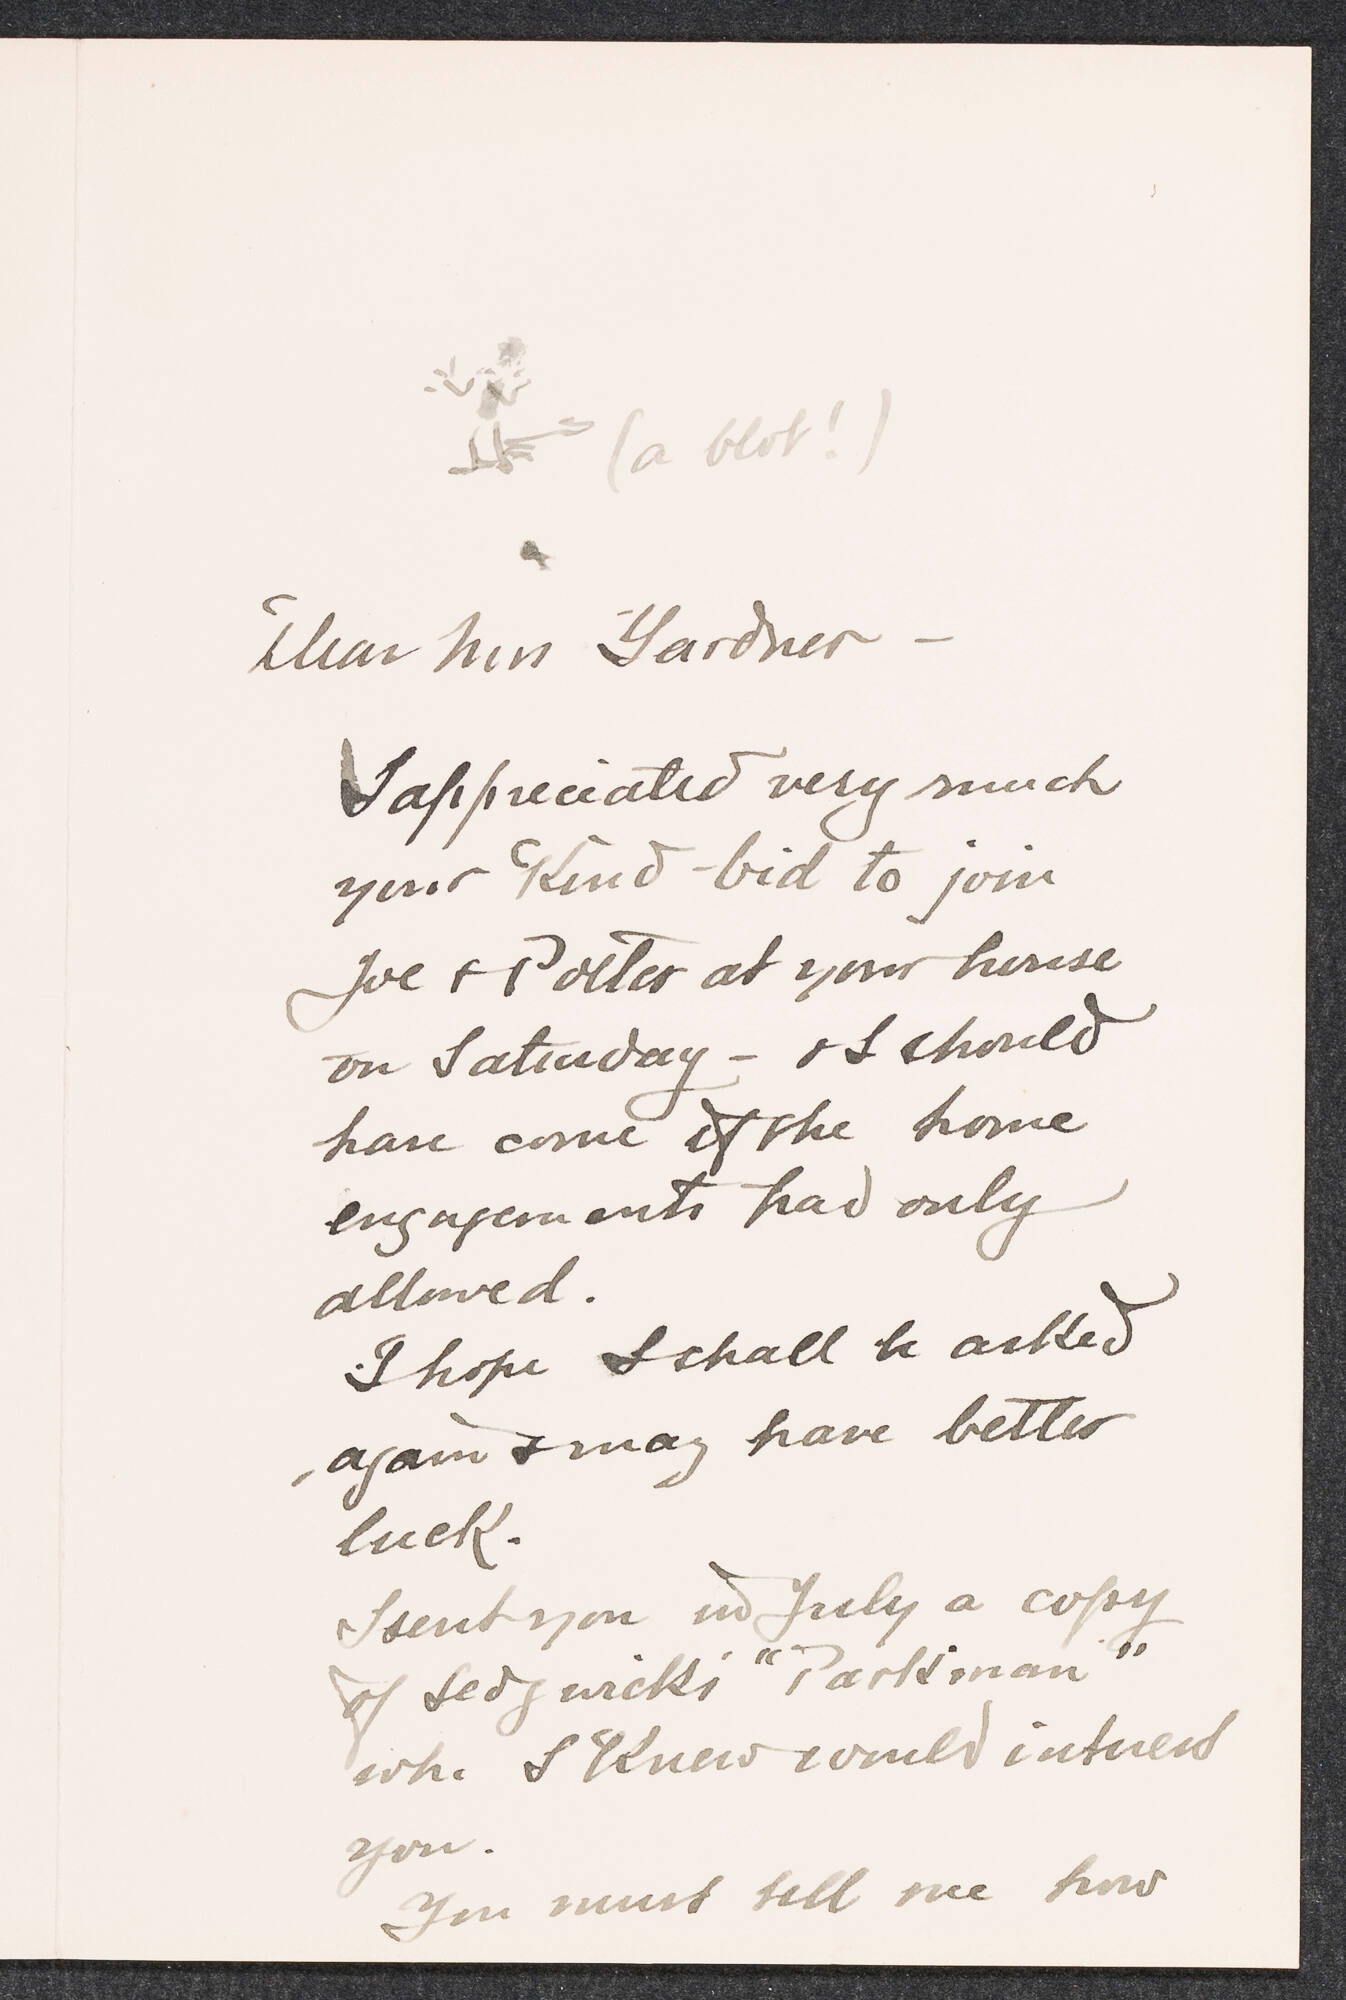 (a blot!)
Dear Mrs Gardner -
I appreciated very much
your kind bid to join
Joe & Potter at your house
on Saturday - & I should
have come if the home
engagements had only
allowed.
I hope I shall be asked
again & may have better
luck.
I sent you in July a copy
of Sedgwick's "Parkman"
wh. I knew would interest
you.
You must tell me how